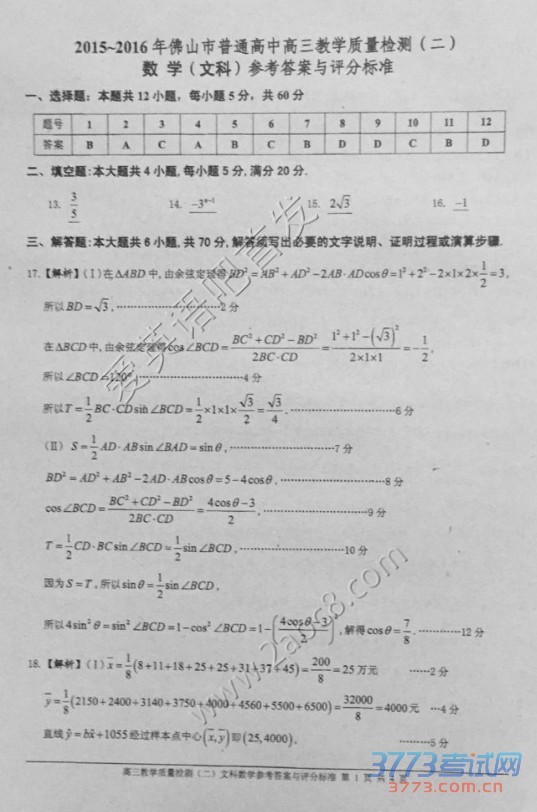 2015~2016年佛山市普通高中高三教学质量检测（二）
数 学（文科）参考答案与评分标准
一、选择题：本题共12小题，每小题5分，共60分
题号 1 2 3 4 5 6 7 8 9 10 11 12
答案 B A C A B C B D D C B D
二、填空题:本大题共4小题,每小题5分,满分20分.
13. 3/5 14. -3^{n-1} 15. 2√3 16. -1
三、解答题:本大题共6小题,共70分,解答须写出必要的文字说明、证明过程或演算步骤.
17.【解析】(Ⅰ)在△ABD中,由余弦定理得BD²=AB²+AD²-2AB·AD cosθ=1²+2²-2×1×2×1/2=3,
所以BD=√3,……………2分
在△BCD中,由余弦定理得cos∠BCD=(BC²+CD²-BD²)/(2BC·CD)=(1²+1²-(√3)²)/(2×1×1)=-1/2,
所以∠BCD=120°.……………4分
所以T=1/2 BC·CD sin∠BCD=1/2×1×1×√3/2=√3/4.……………6分
(Ⅱ) S=1/2 AD·AB sin∠BAD=sinθ,……………7分
BD²=AD²+AB²-2AD·AB cosθ=5-4cosθ,……………8分
cos∠BCD=(BC²+CD²-BD²)/(2BC·CD)=(4cosθ-3)/2,……………9分
T=1/2 CD·BC sin∠BCD=1/2 sin∠BCD,……………10分
因为S=T,所以sinθ=1/2 sin∠BCD,
所以4sin²θ=sin²∠BCD=1-cos²∠BCD=1-((4cosθ-3)/2)²,解得cosθ=7/8.…………12分
18.【解析】(Ⅰ) x̄=1/8(8+11+18+25+25+31+37+45)=200/8=25万元 ……2分
ȳ=1/8(2150+2400+3140+3750+4000+4560+5500+6500)=32000/8=4000元 …4分
直线ŷ=b̂x+1055经过样本点中心(x̄,ȳ)即(25,4000).……5分
高三教学质量检测（二）文科数学参考答案与评分标准 第 1 页 共 页
爱英语吧首发
www.2abc8.com
3773考试网
www.3773.com